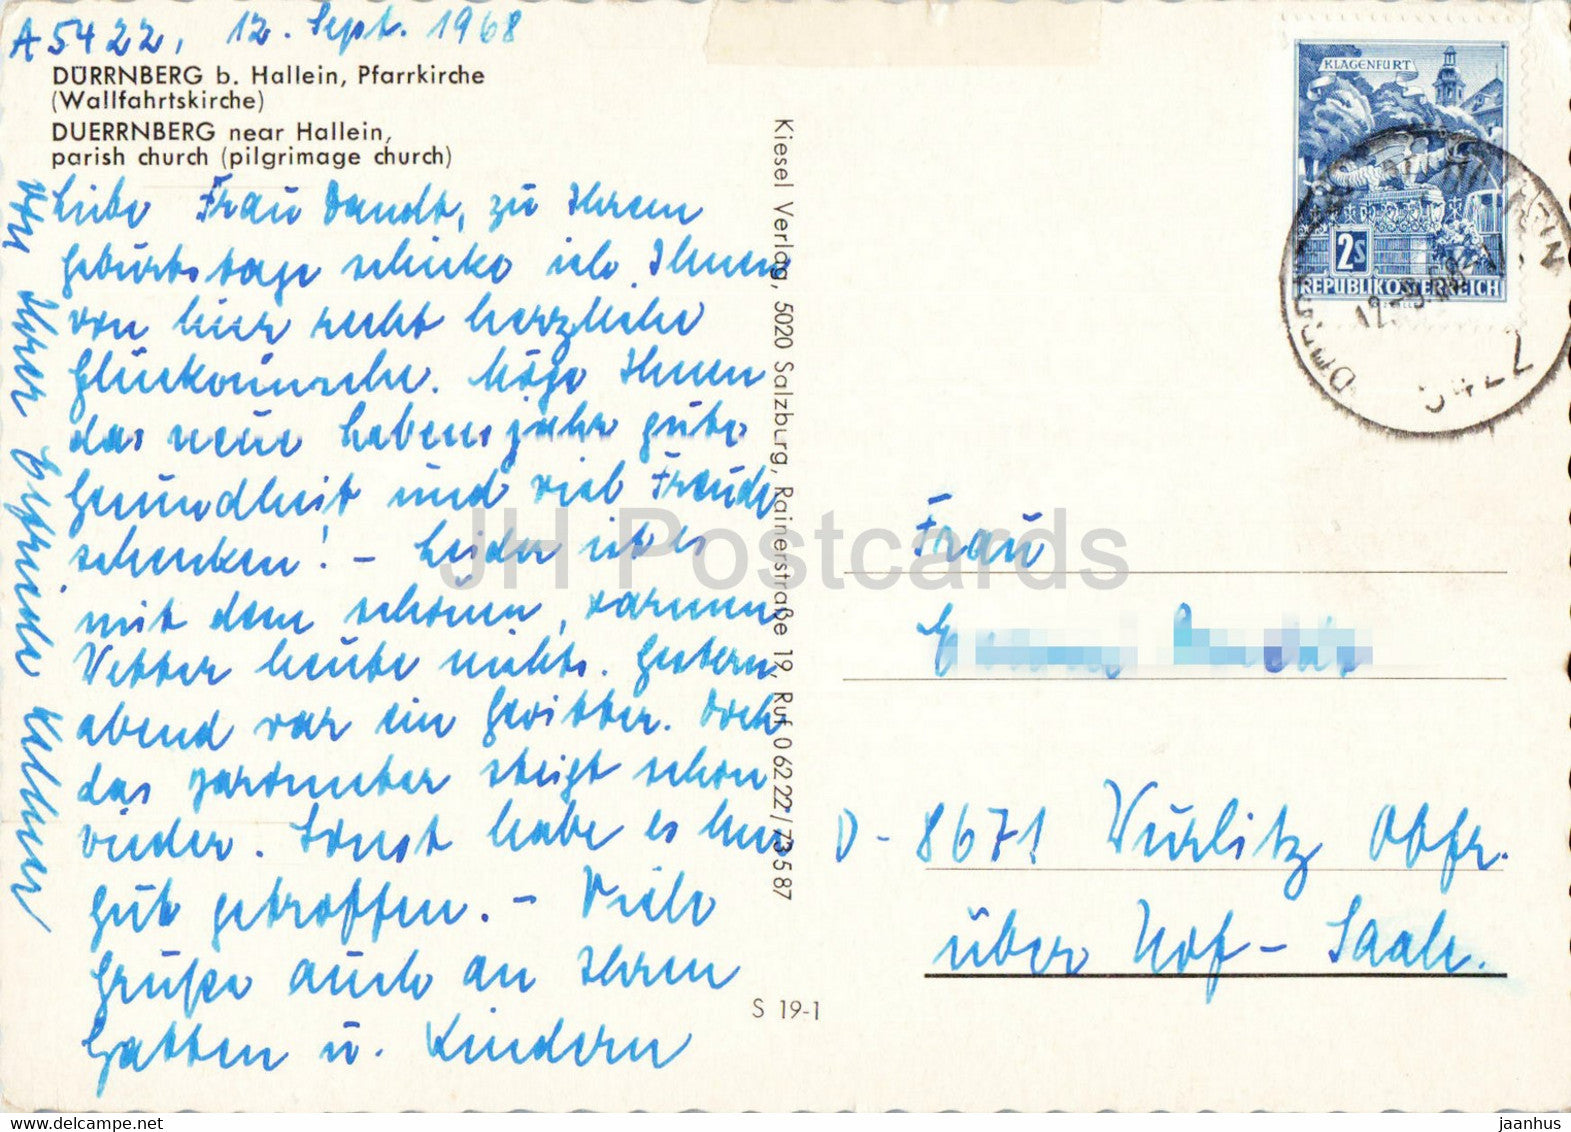 A 5422, 12. Sept. 1968
DÜRRNBERG b. Hallein, Pfarrkirche
(Wallfahrtskirche)
DUERRNBERG near Hallein,
parish church (pilgrimage church)
Liebe Frau Dandt, zu Ihrem
Geburtstage schicke ich Ihnen
von hier recht herzliche
Glückwünsche. Möge Ihnen
das neue Lebensjahr gute
Gesundheit und viel Freude
schenken! – Leider ist es
mit dem schönen, warmen
Wetter heute nichts. Gestern
abend war ein Gewitter. Doch
das Barometer steigt schon
wieder. Sonst habe es hier
gut getroffen. – Viele
Grüße auch an Ihren
Gatten u. Kindern
von Ihrer Elfriede
Kiesel Verlag, 5020 Salzburg, Rainerstraße 19, Ruf 0 62 22 / 73 5 87
S 19-1
KLAGENFURT
2S
REPUBLIK ÖSTERREICH
12.-9.68
5422
Frau
D - 8671 Wurlitz Obfr.
über Hof - Saale.
JH Postcards
www.delcampe.net
jaanhus